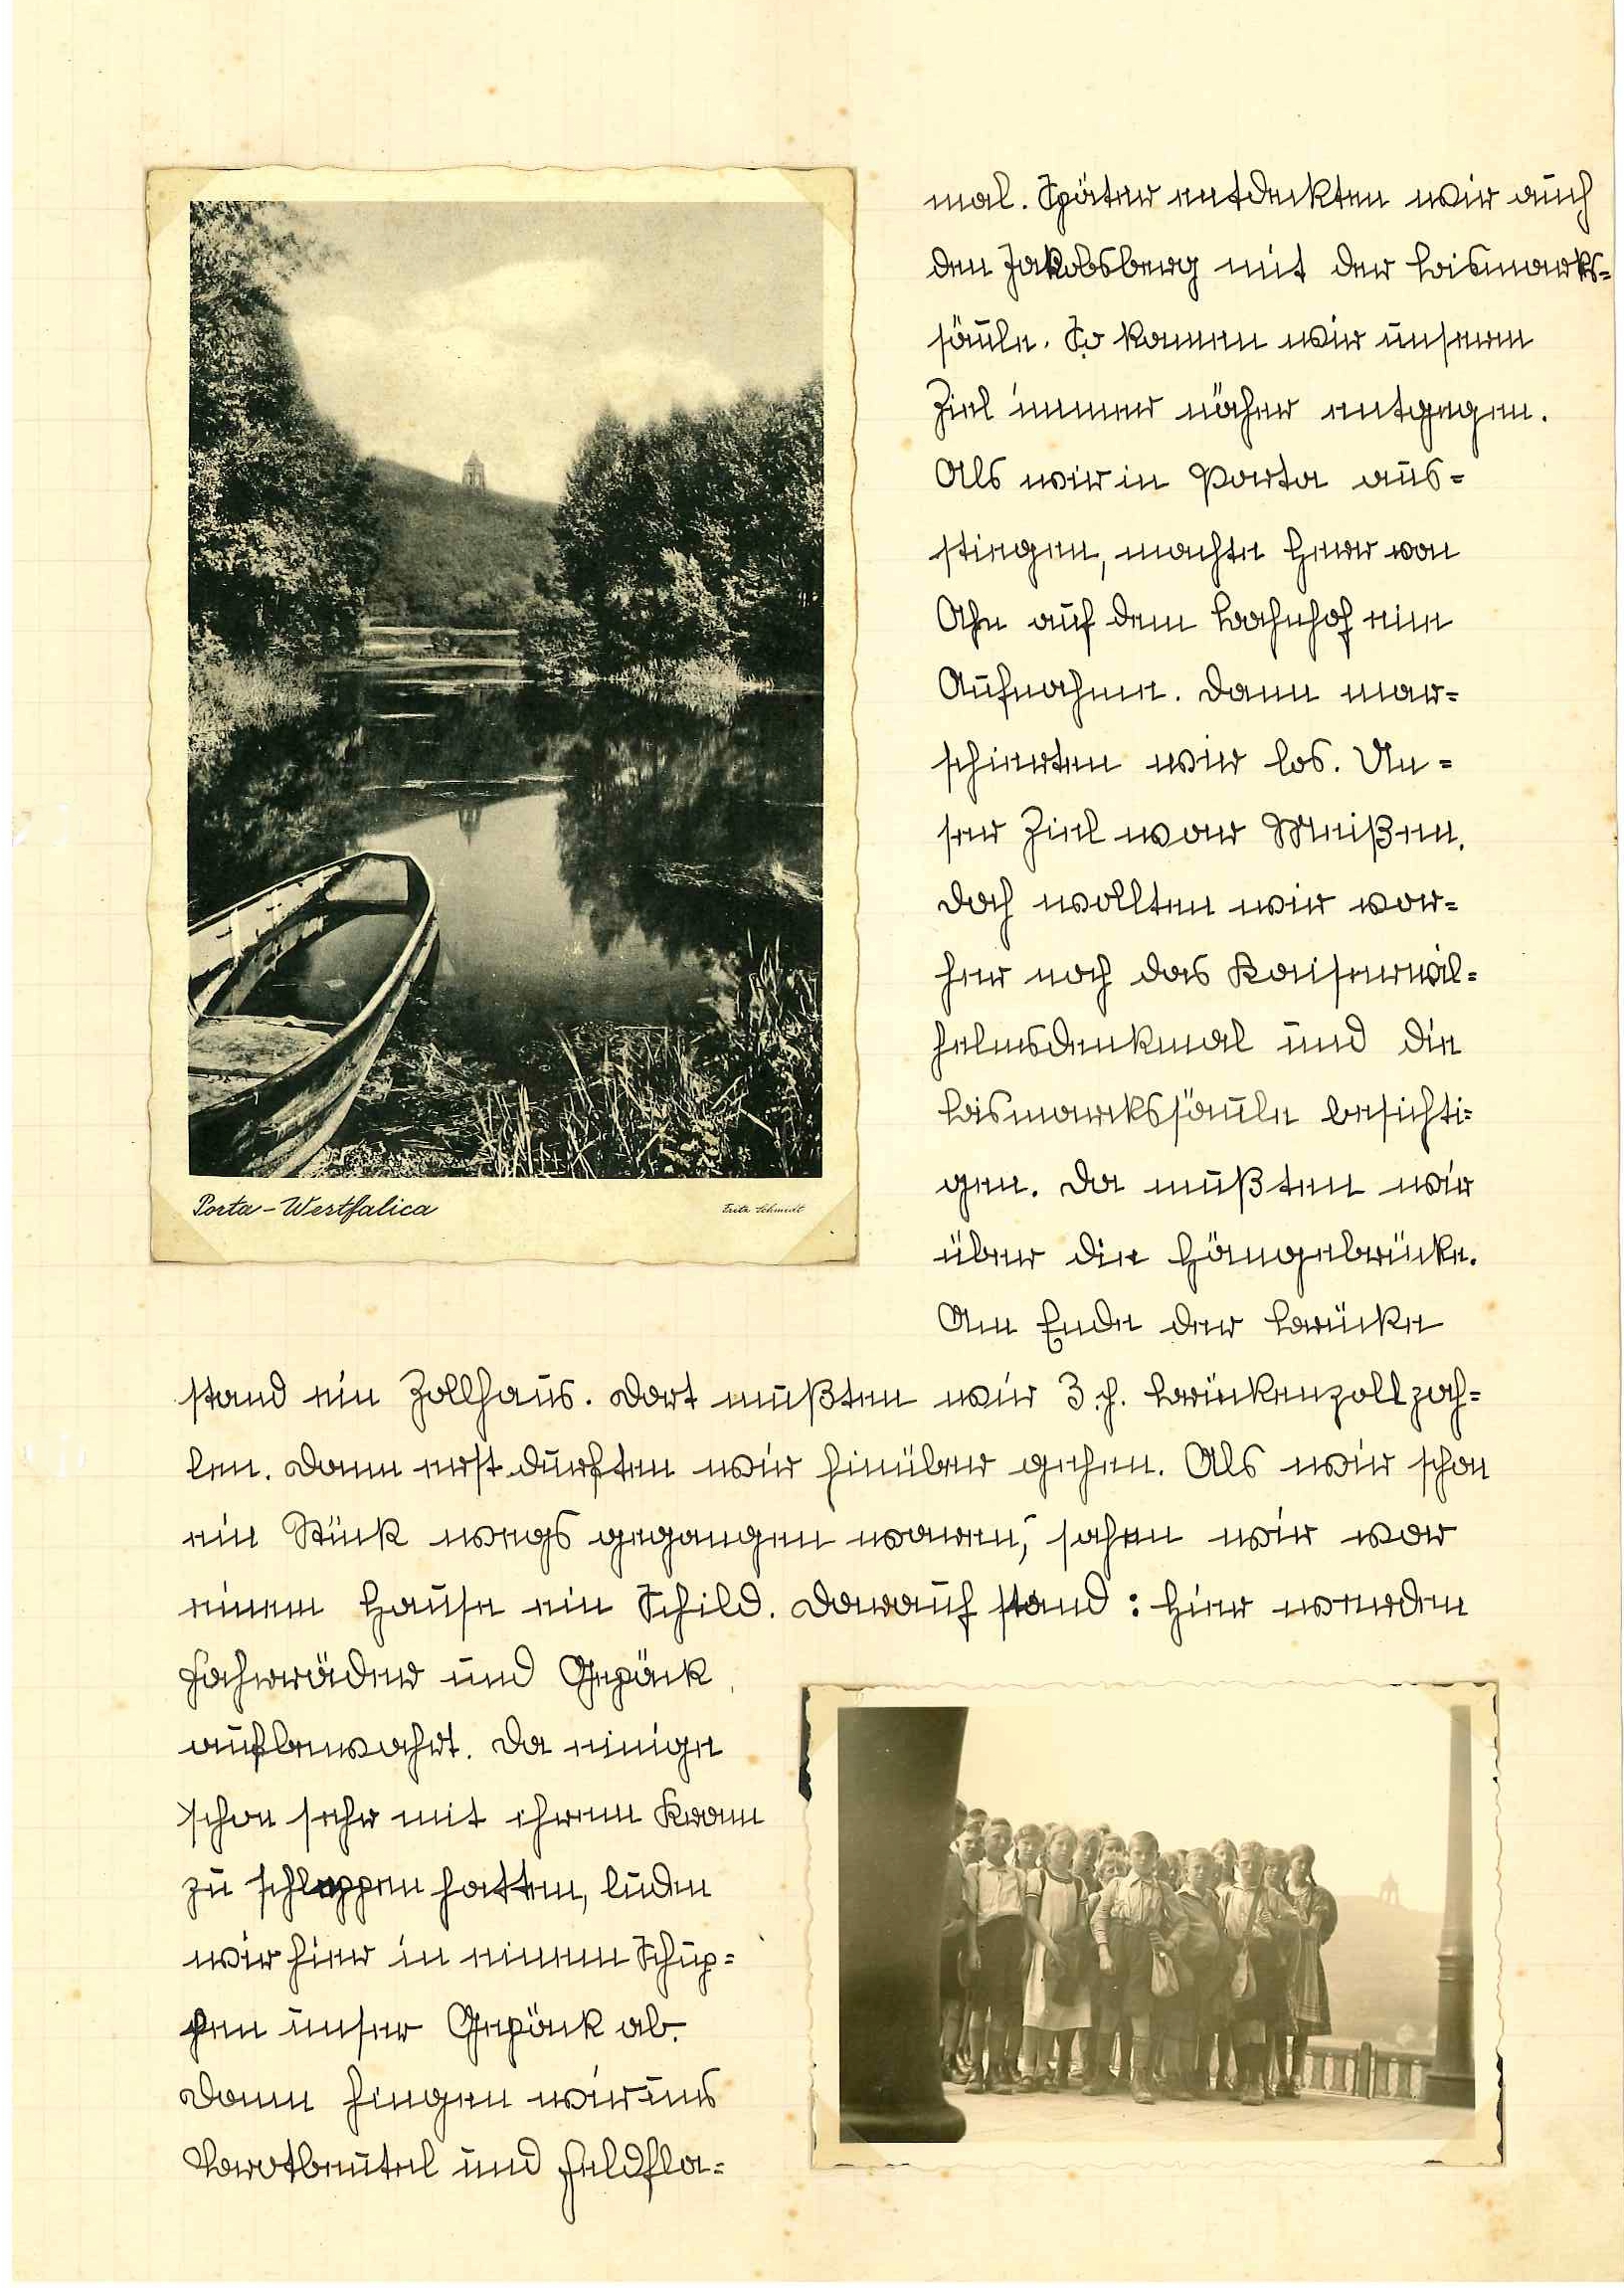 mal. Später entdeckten wir auch
den Jakobsberg mit der Bismarks=
säule. So kamen wir unserm
Ziel immer näher entgegen.
Als wir in Porta aus=
stiegen, machte Herr von
Ahn auf dem Bahnhof eine
Aufnahme. Dann mar=
schierten wir los. Un=
ser Ziel war Meißen.
Doch wollten wir vor=
her noch das Kaiserwil=
helmsdenkmal und die
Bismarkssäule besichti=
gen. Da mußten wir
über die Hängebrücke.
Am Ende der Brücke
Porta-Westfalica
Fritz Schmidt
stand ein Zollhaus. Dort mußten wir 3 Pf. Brückenzoll zah=
len. Dann erst durften wir hinüber gehen. Als wir schon
ein Stück wegs gegangen waren, sahen wir vor
einem Hause ein Schild. Darauf stand: Hier werden
Fahrräder und Gepäck
aufbewahrt. Da einige
schon sehr mit ihrem Kram
zu schleppen hatten, luden
wir hier in einem Schup=
pen unser Gepäck ab.
Dann hingen wir uns
Brotbeutel und Feldfla=